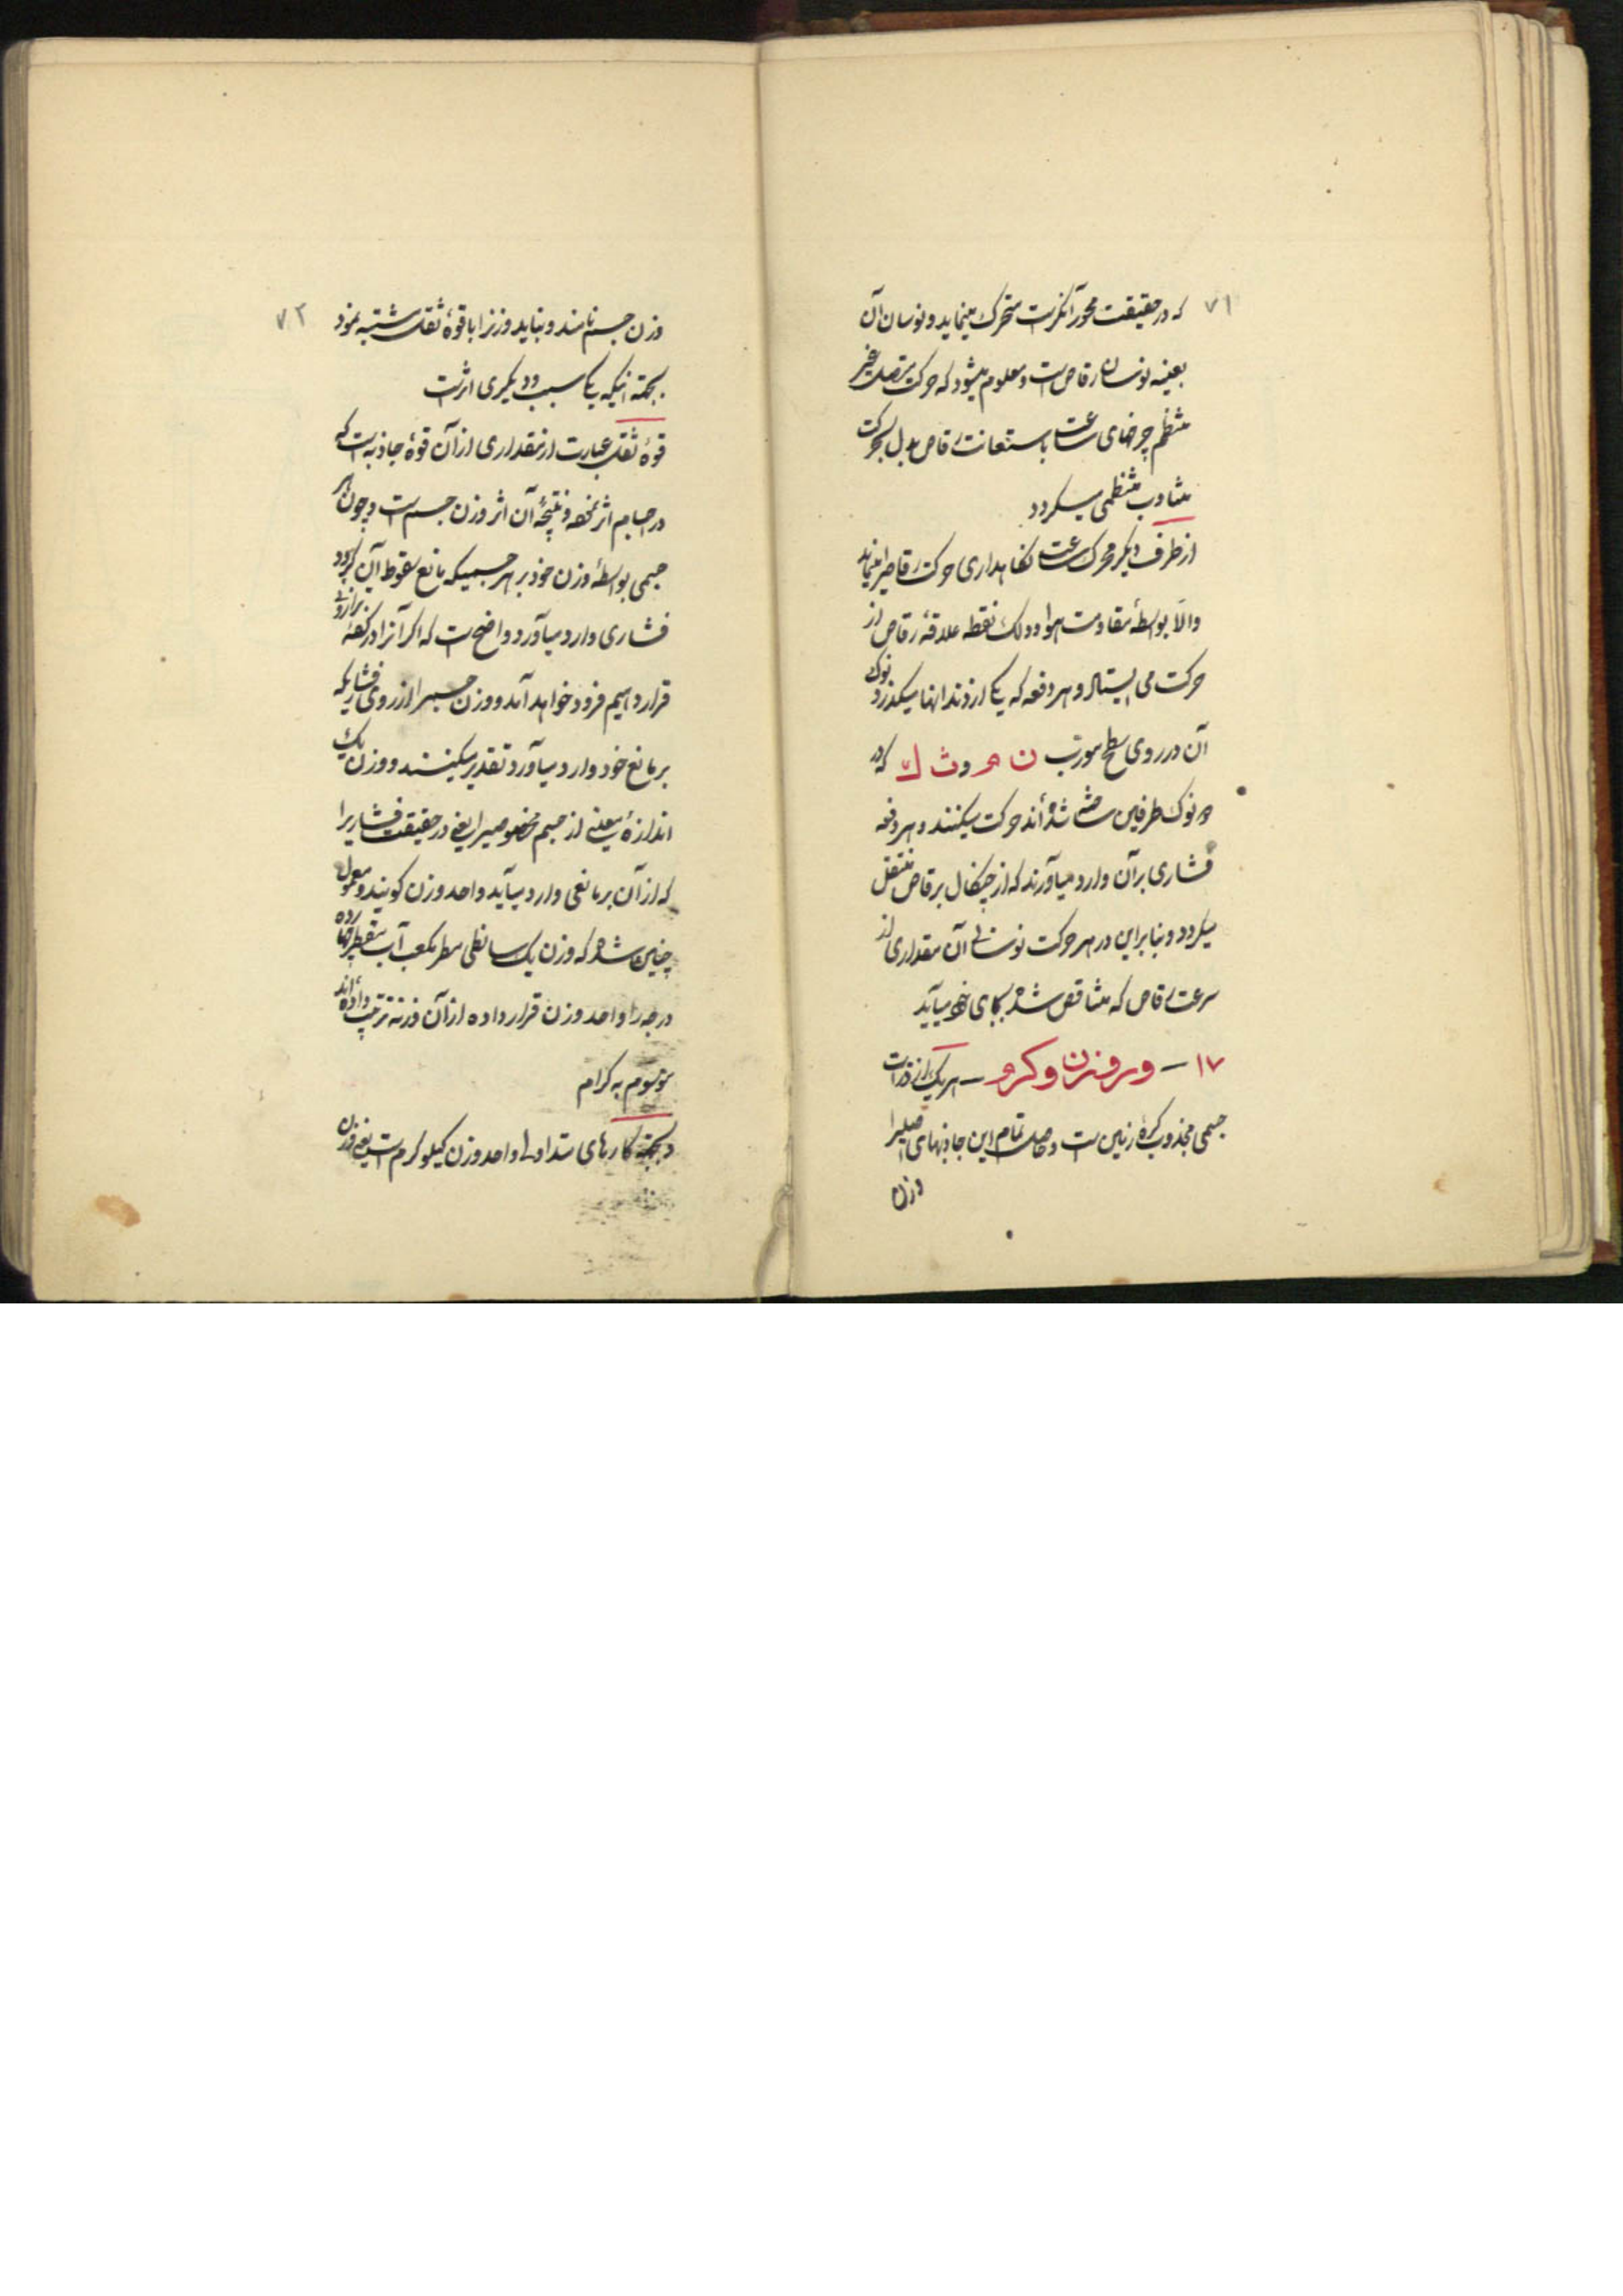 ۷۱
که در حقیقت محور آنکرست متحرک مینماید و نوسان آن
بعینه نوسان رقاص است و معلوم میشود که حرکت متصل غیر
منظم چرخهای ساعت باستعانت رقاص مبدل بحرکت
متناوب منظمی میگردد
از طرف دیگر محرک ساعت نگاهداری حرکت رقاصرا مینماید
والّا بواسطهٔ مقاومت هوا و دلک نقطه علاقهٔ رقاص از
حرکت می ایستاد و هر دفعه که یکی از دندانها میگذرد نوک
آن در روی سطح مورب ن م و ث ک که در
دو نوک طرفین ساخته شده‌اند حرکت میکنند و هر دفعه
فشاری بر آن وارد میآورند که از چنگال برقاص منتقل
میگردد و بنابراین در هر حرکت نوسانی آن مقداری از
سرعت رقاص که متناقص شده بجای خود میآید
۱۷ – وزن و گرم – هر یک از ذرات
جسمی مجذوب کرهٔ زمین است و حاصل تمام این جاذبهای اصلیرا
وزن
۷۲
وزن جسم نامند و نباید وزنرا با قوهٔ ثقل مشتبه نمود
بجهة اینکه یکی سبب و دیگری اثرست
قوهٔ ثقل عبارت از مقداری از آن قوهٔ جاذبه است که
در اجسام اثر نموده و نتیجهٔ آن اثر وزن جسم است و چون هر
جسمی بواسطهٔ وزن خود بر هر جسمیکه مانع سقوط آن گردد
فشاری وارد میآورد واضح است که اگر آنرا در کفهٔ ترازوئی
قرار دهیم فرود خواهد آمد و وزن جسمرا از روی فشاریکه
بر مانع خود وارد میآورد تقدیر میکنند و وزن یک
اندازهٔ معینی از جسم مخصوصیرا یعنی در حقیقت فشاریرا
که از آن بر مانعی وارد میآید واحد وزن گویند و معمول
چنین شده که وزن یک سانطی مطر مکعب آب مقطر چهار
درجه را واحد وزن قرار داده از آن وزنه ترتیب داده‌اند
موسوم به گرام
و بجهة کارهای متداولی واحد وزن کیلوگرم است یعنی وزن